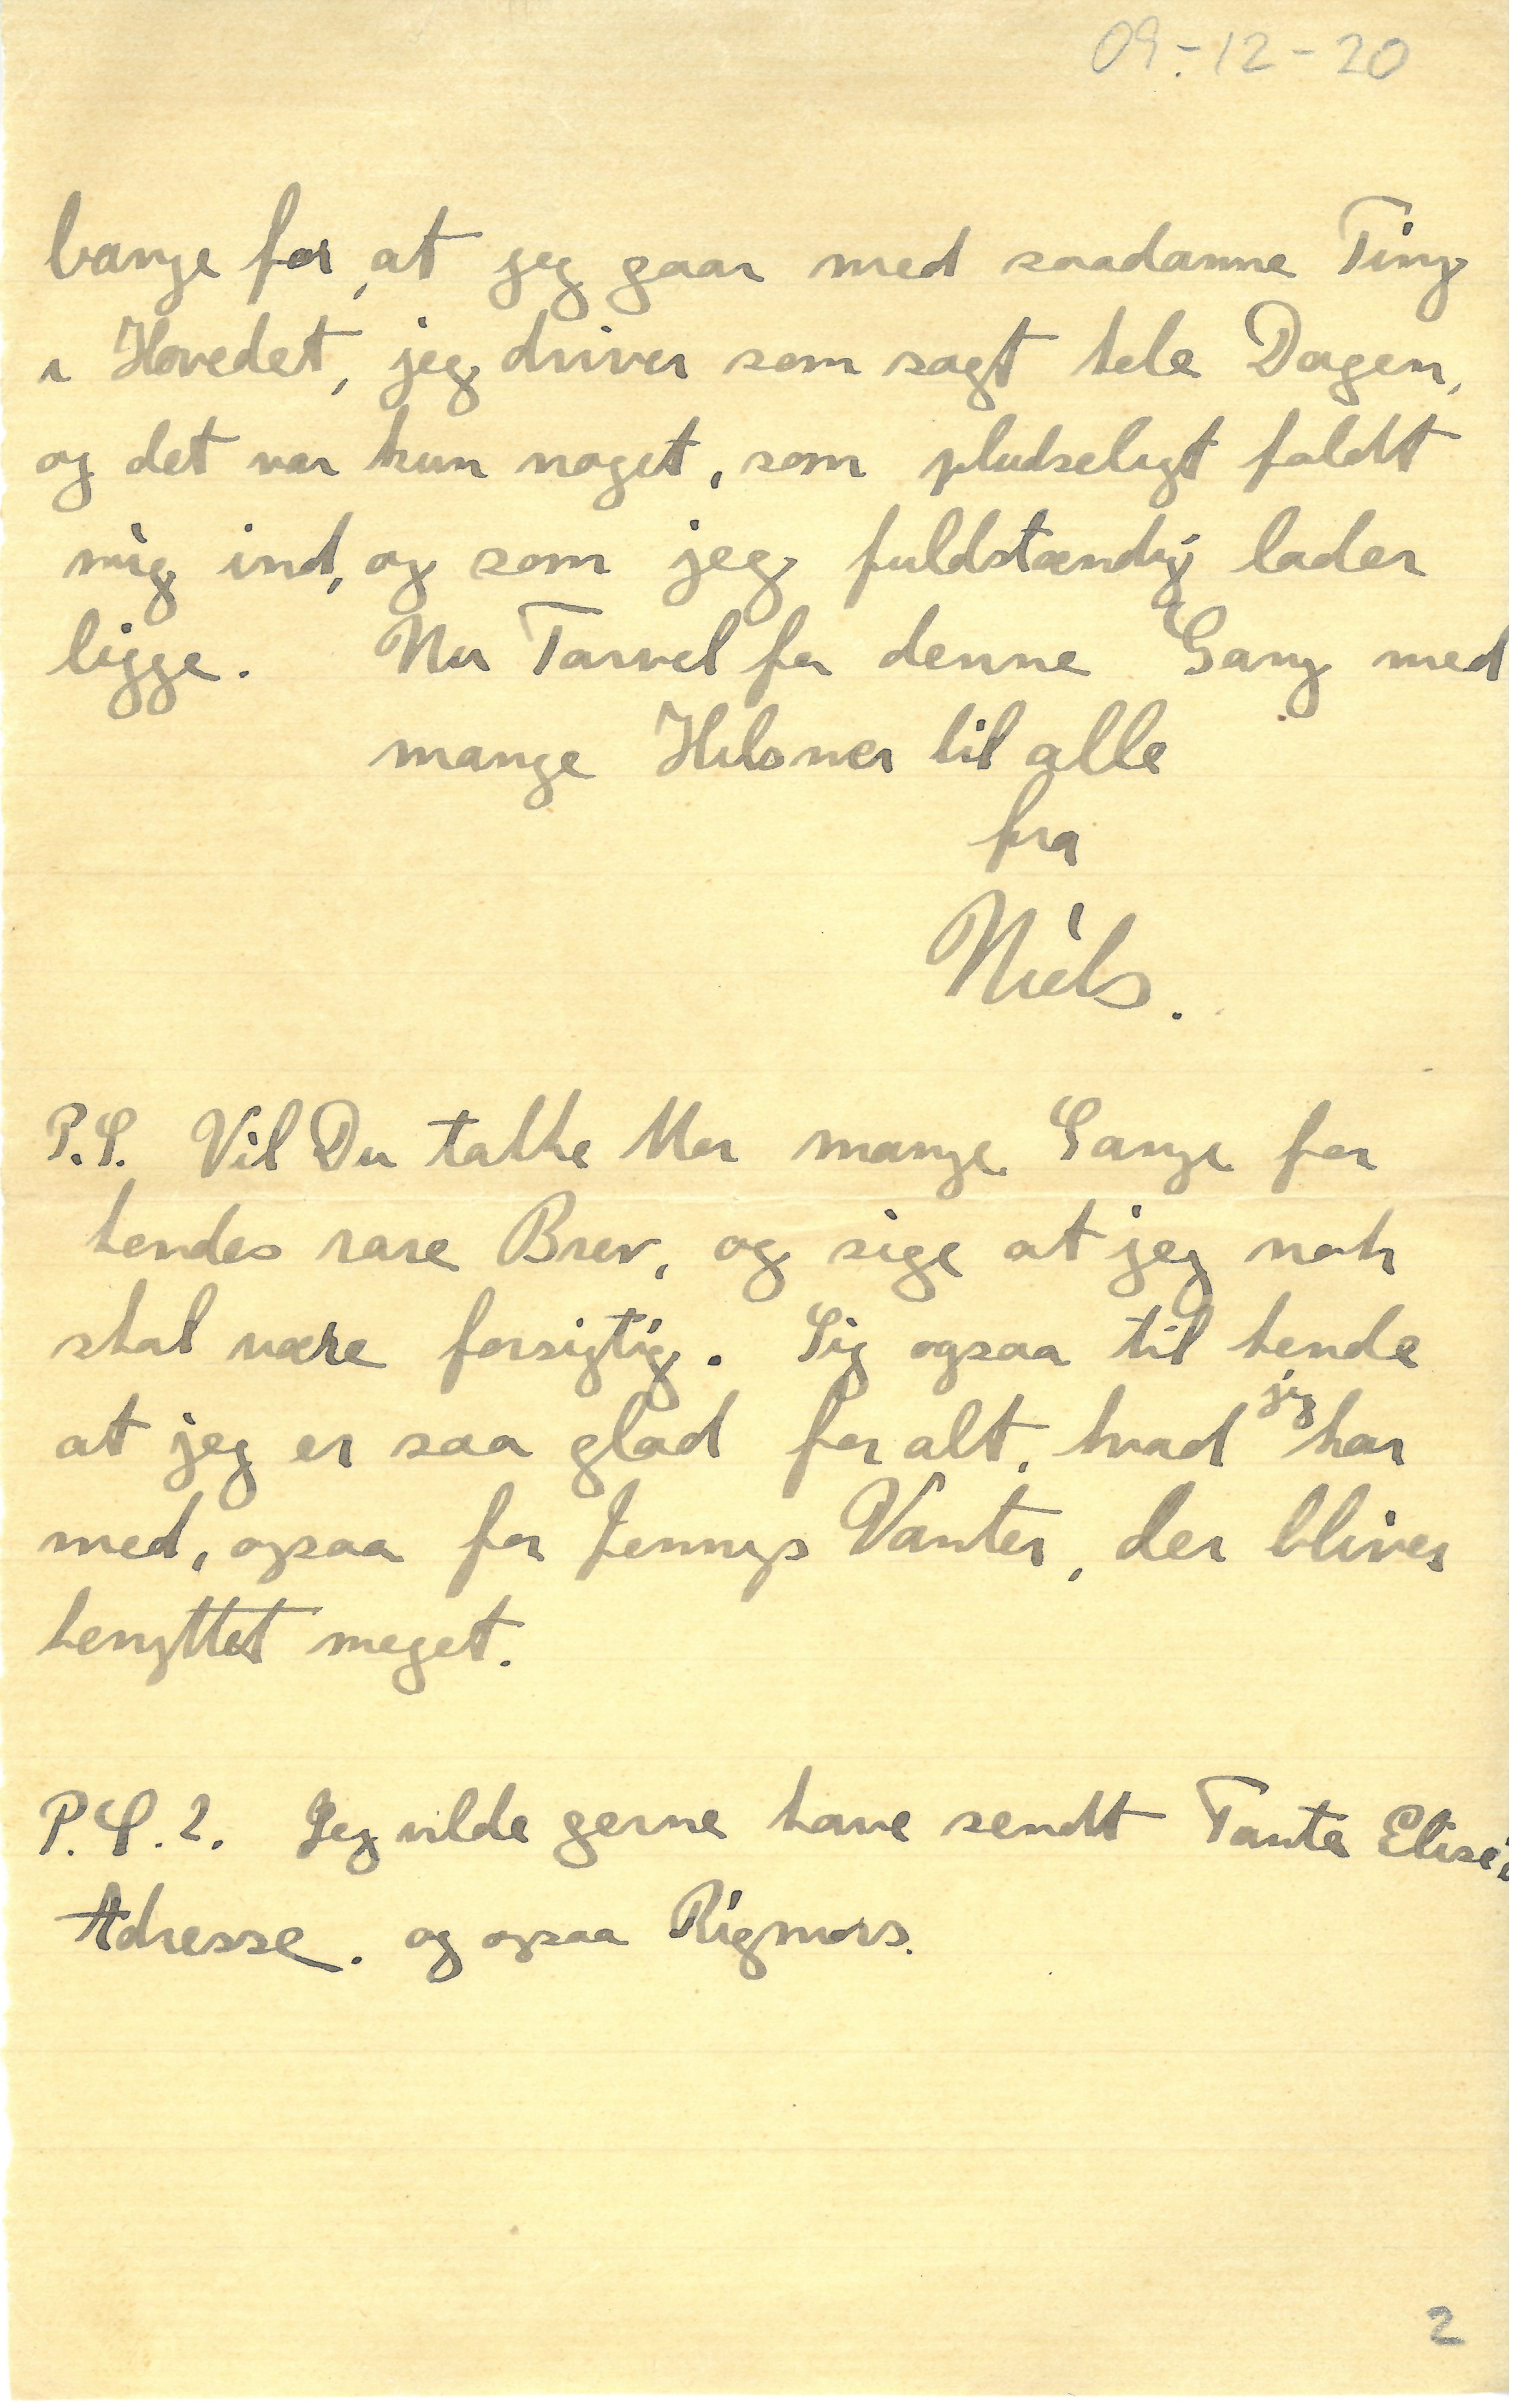 09.-12-20
bange for, at jeg gaar med saadanne Ting
i Hovedet, jeg driver som sagt hele Dagen,
og det var kun noget, som pludseligt faldt
mig ind, og som jeg fuldstændig lader
ligge. Nu Farvel for denne Gang med
mange Hilsner til alle
fra
Niels.
P.S. Vil Du takke Mor mange Gange for
hendes rare Brev, og sige at jeg nok
skal være forsigtig. Sig ogsaa til hende
at jeg er saa glad for alt, hvad jeg har
med, ogsaa for Jennys Vanter, der bliver
benyttet meget.
P.S.2. Jeg vilde gerne have sendt Tante Elise's
Adresse. og ogsaa Rigmors.
2